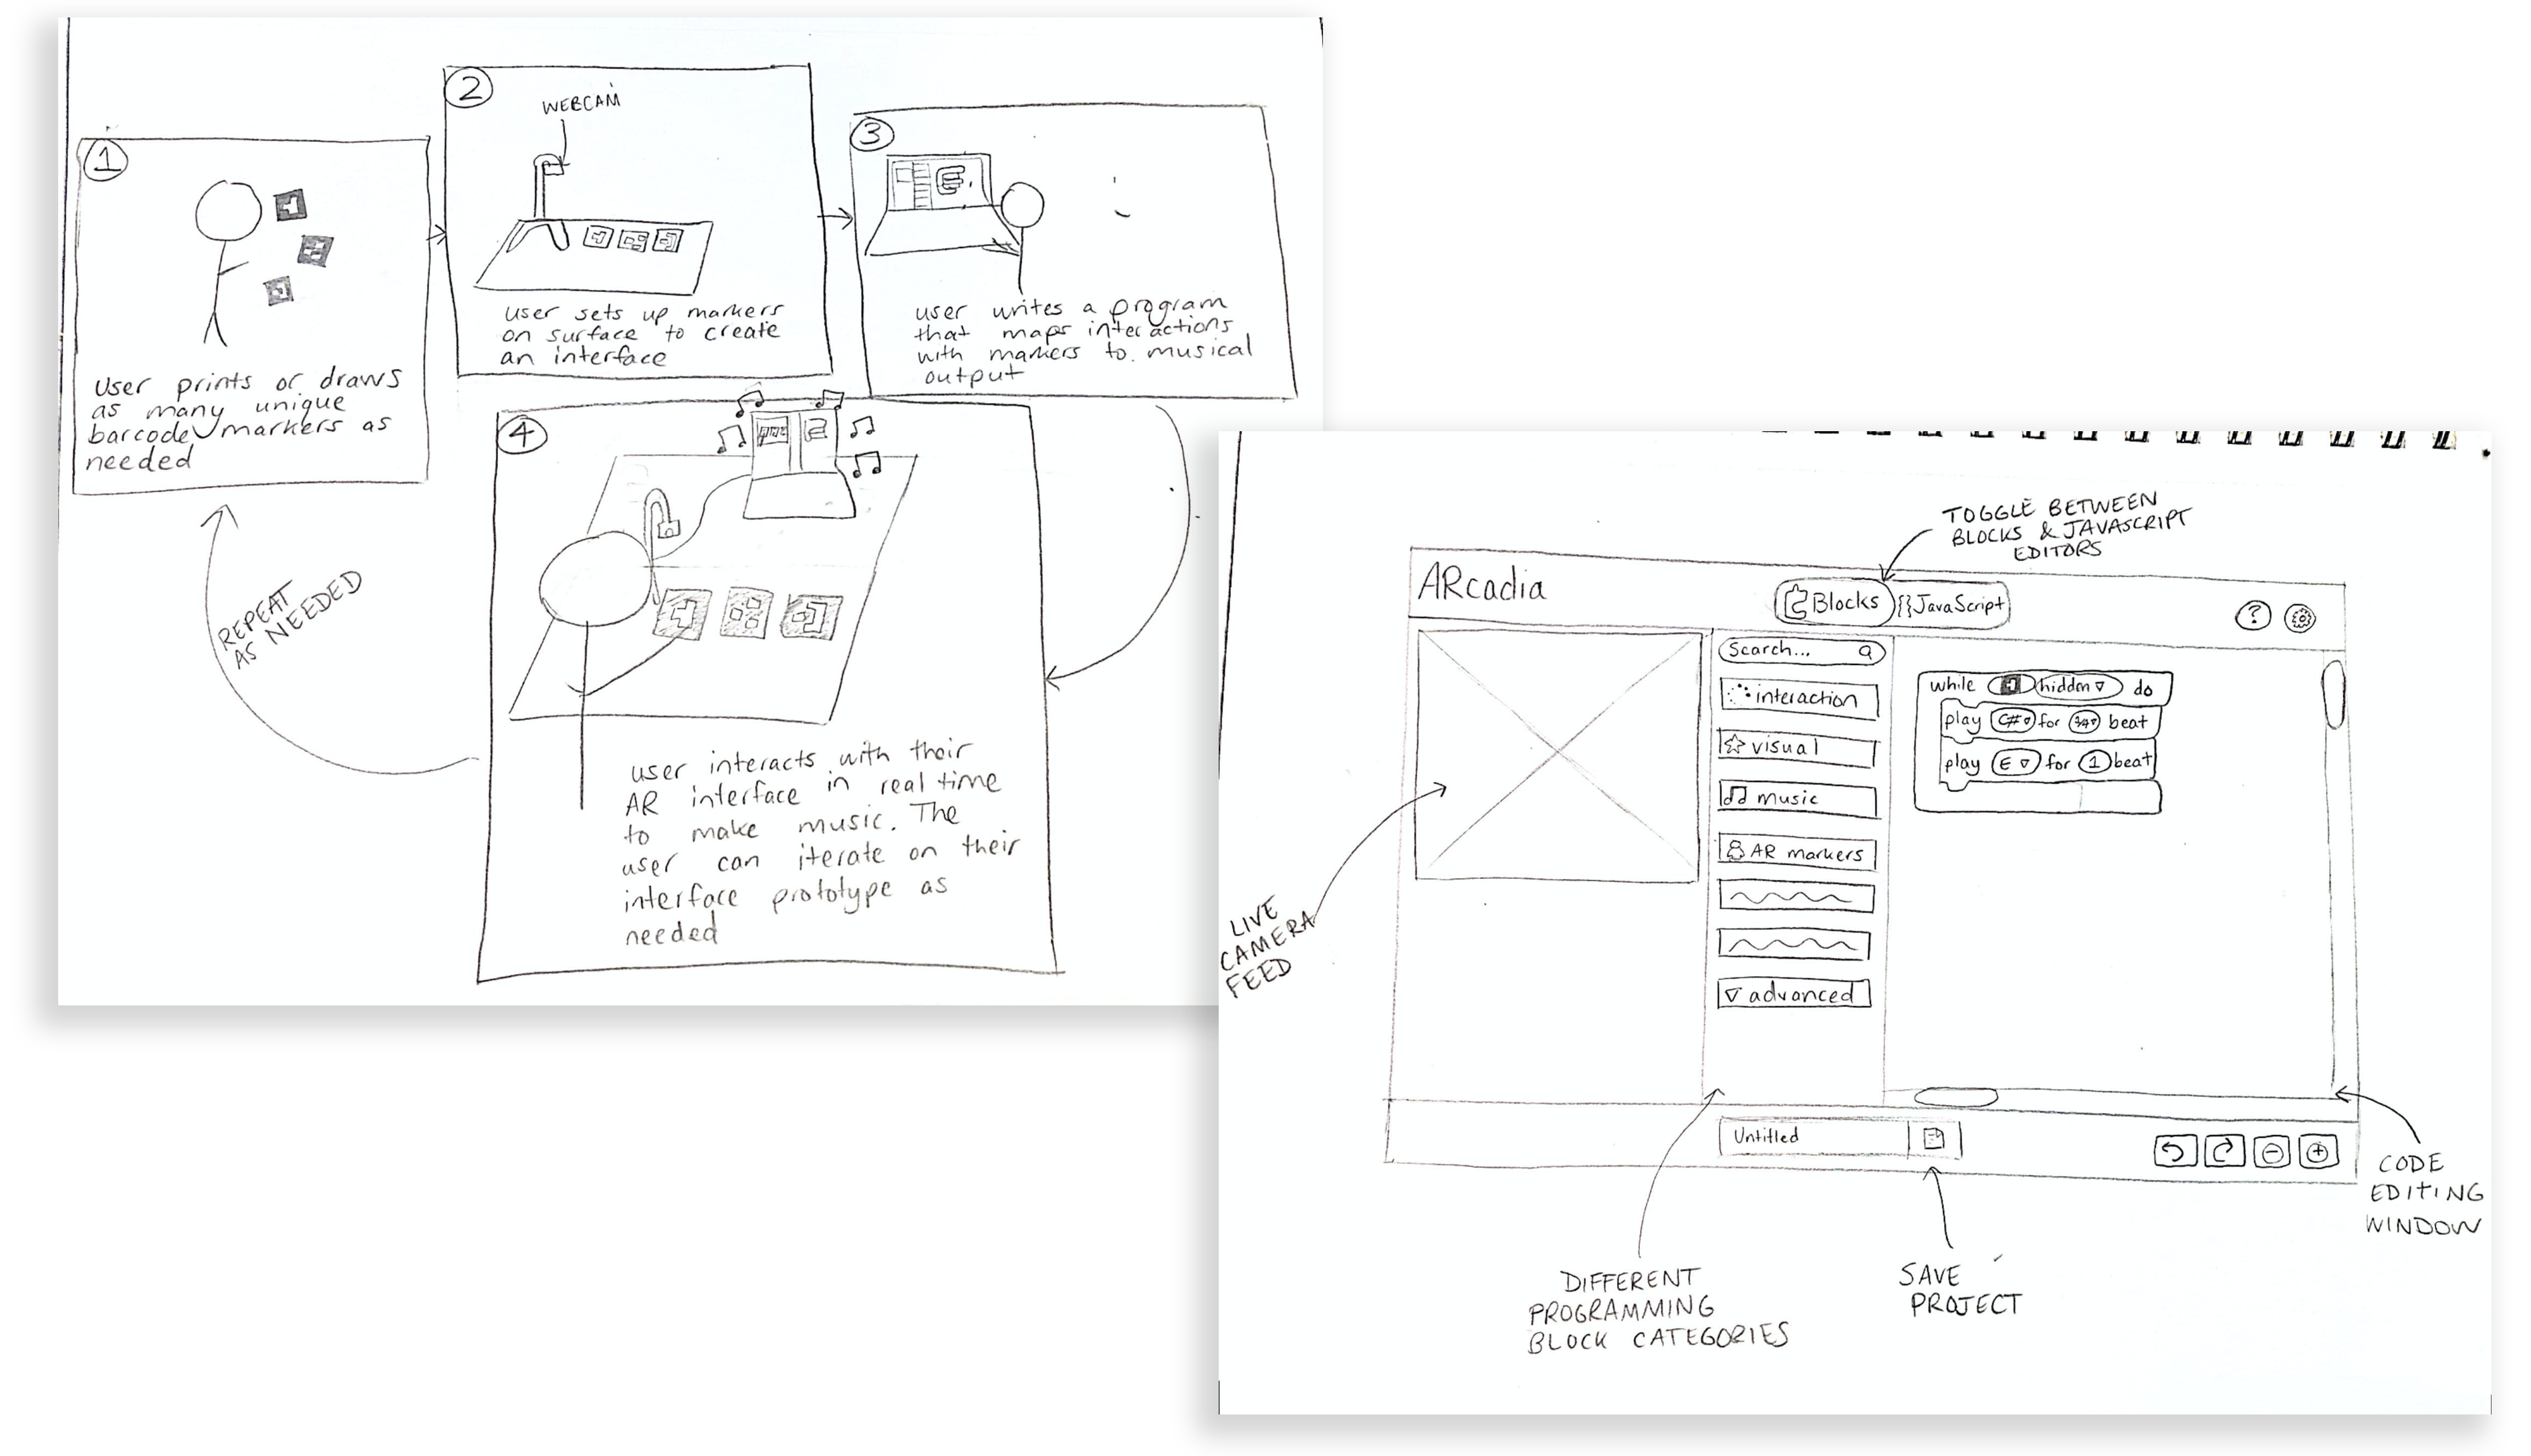 1
User prints or draws
as many unique
barcode markers as
needed
2
WEBCAM
user sets up markers
on surface to create
an interface
3
user writes a program
that maps interactions
with markers to musical
output
4
user interacts with their
AR interface in real time
to make music. The
user can iterate on their
interface prototype as
needed
REPEAT
AS NEEDED
TOGGLE BETWEEN
BLOCKS & JAVASCRIPT
EDITORS
ARcadia
Blocks {}JavaScript
?
Search...
interaction
visual
music
AR markers
advanced
while hidden do
play C# for 3/4 beat
play E for 1 beat
LIVE
CAMERA
FEED
Untitled
CODE
EDITING
WINDOW
DIFFERENT
PROGRAMMING
BLOCK CATEGORIES
SAVE
PROJECT